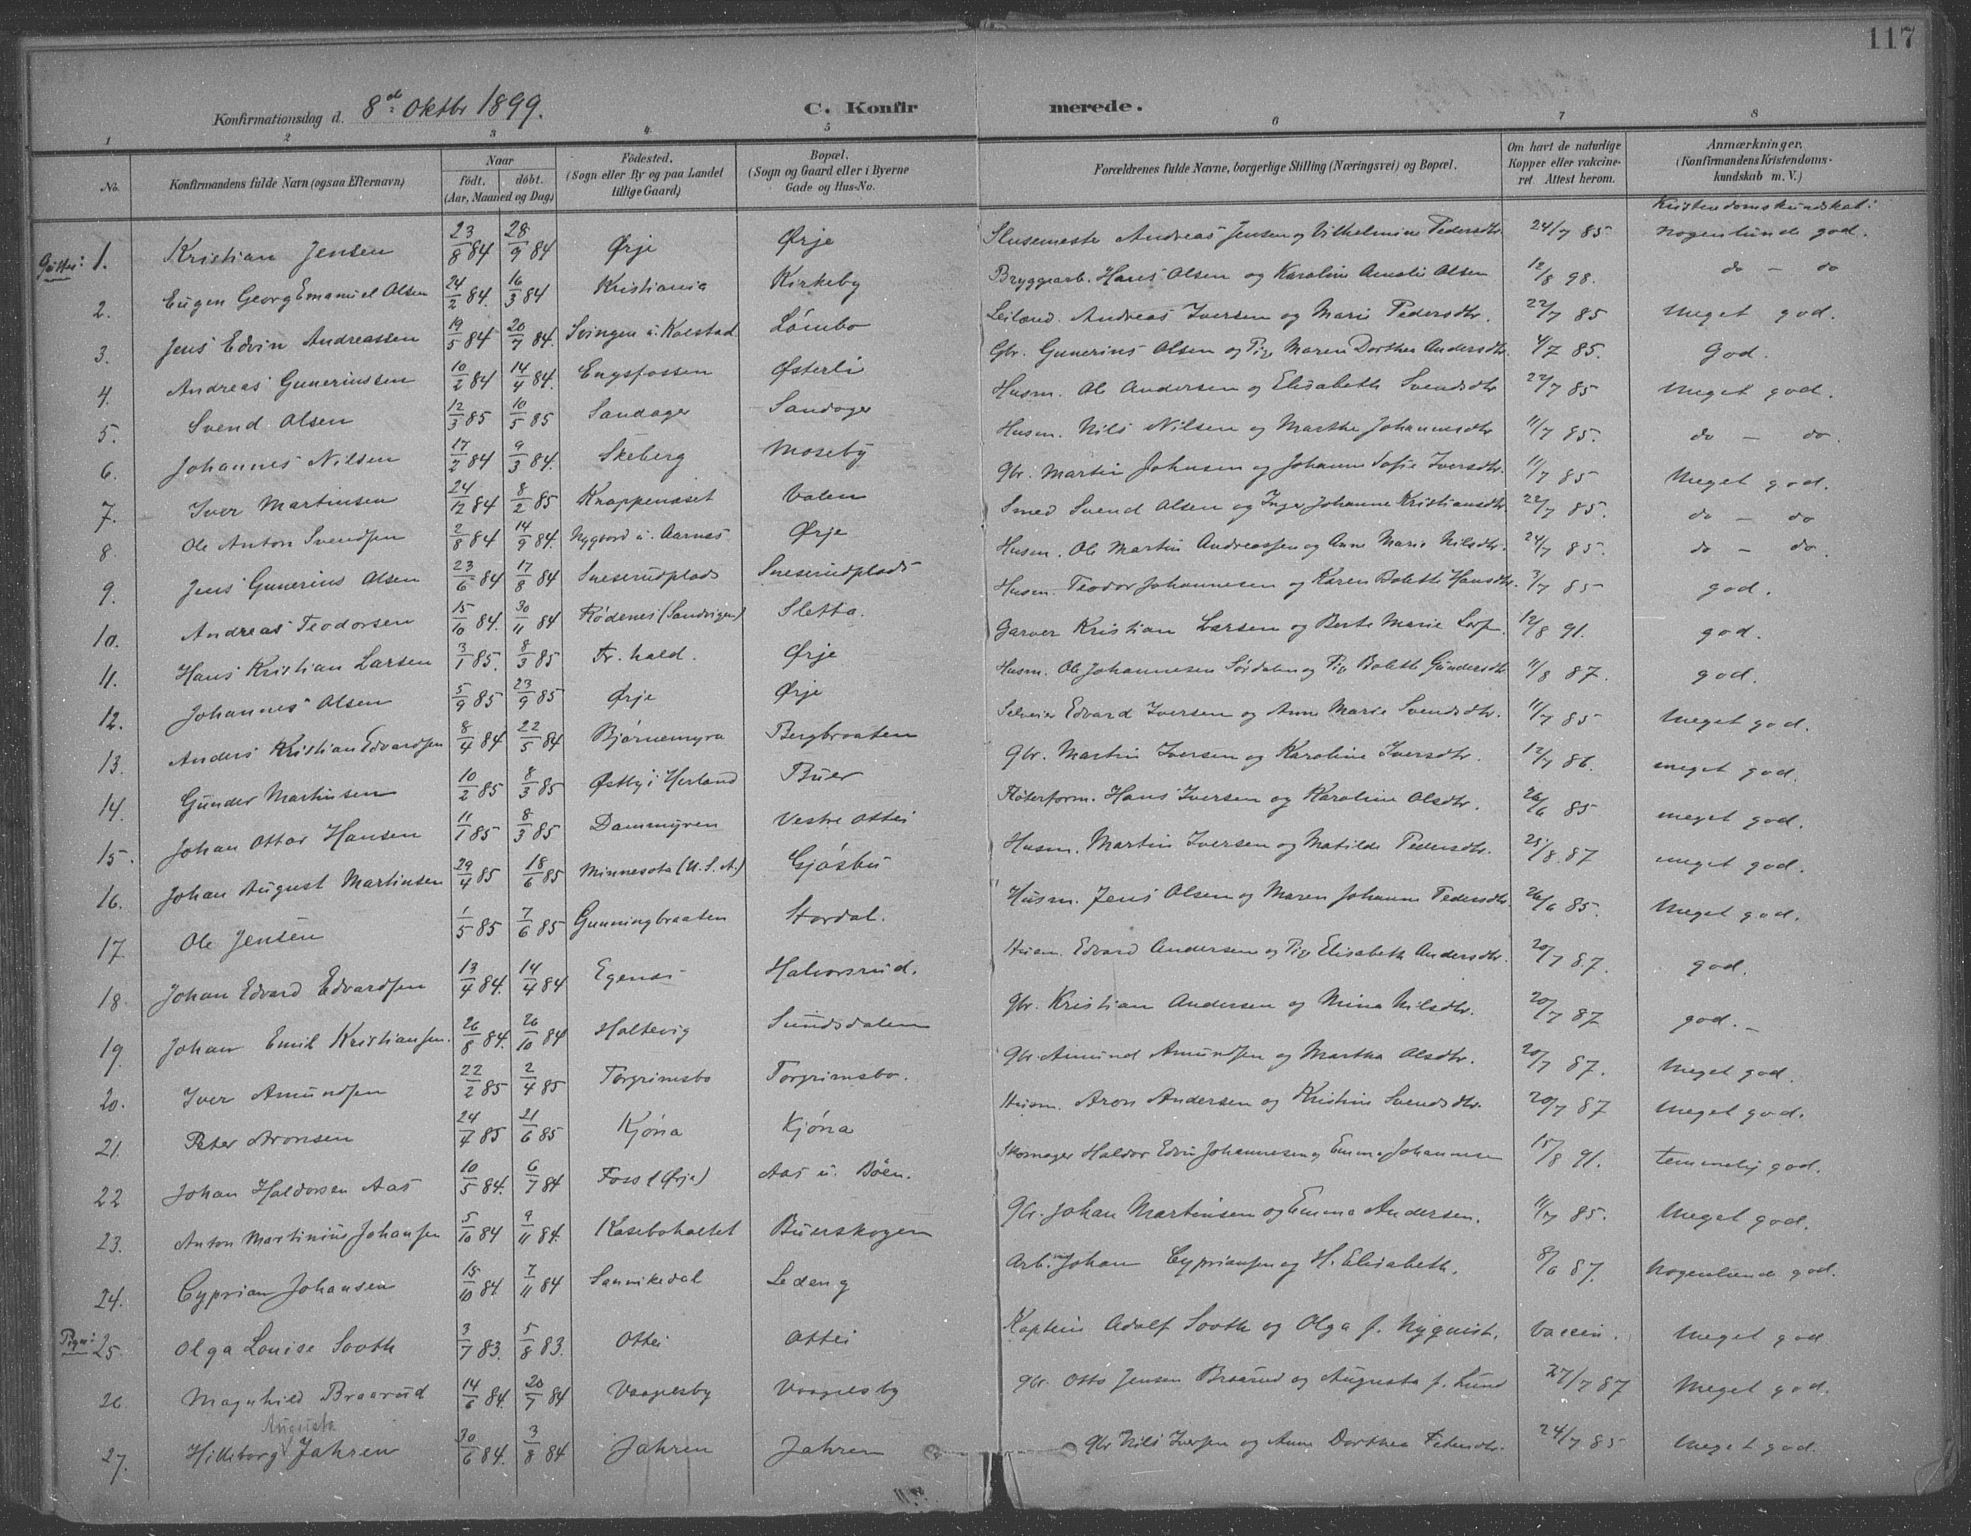 117
Konfirmationsdag d. 8de Oktbr 1899. C. Konfirmerede.
1 2 3 4. 5 6 7 8
No. Konfirmandens fulde Navn (ogsaa Efternavn) Naar født, døbt. (Aar, Maaned og Dag) Fødested. (Sogn eller By og paa Landet tillige Gaard) Bopæl. (Sogn og Gaard eller i Byerne Gade og Hus-No. Forældrenes fulde Navne, borgerlige Stilling (Næringsvei) og Bopæl. Om havt de naturlige Kopper eller vakcineret Attest herom. Anmærkninger. (Konfirmandens Kristendomskundskab m. V.)
Kristendomskundskab:
Gutter: 1. Kristian Jensen 23/8 84 28/9 84 Ørje Ørje Slusemester Andreas Jensen og Vilhelmine Pedersdtr 24/7 85 nogenlunde god.
2. Eugen Georg Emanuel Olsen 24/2 84. 16/3 84 Kristiania Kirkeby Bryggearb. Hans Olsen og Karoline Amalie Olsen 12/8 98. do – do
3. Jens Edvin Andreassen 19/5 84 20/7 84. Svingen u. Kolstad Lømbo Leilænd. Andreas Iversen og Marie Pedersdtr. 22/7 85 Meget god.
4. Andreas Gunerinssen 10/2 84 14/4 84. Engsfossen Østerli Gbr. Gunerius Olsen og Pig. Maren Dorthea Andersdtr 4/7 85. God.
5. Svend Olsen 12/3 85 10/5 85 Sandager Sandager Husm. Ole Andersen og Elisabeth Svendsdtr 22/7 85 Meget god.
6. Johannes Nilsen 17/2 84 9/3 84. Skeberg Moseby Husm. Nils Nilsen og Marthe Johannesdtr 11/7 85. do – do.
7. Iver Martinsen 24/12 84 8/2 85 Knappenæset Valen Gbr. Martin Johnsen og Johanne Sofie Iversdtr. 11/7 85 Meget god.
8. Ole Anton Svendsen 2/8 84 14/9 84. Nygaard u. Aarnæs Ørje Smed Svend Olsen og Inger Johanne Kristiansdtr 22/7 85. do – do
9. Jens Gunerius Olsen 23/6 84 17/8 84 Sneserudplads Sneserudplads Husm. Ole Martin Andreassen og Anne Marie Nilsdtr. 24/7 85. do – do.
10. Andreas Teodorsen 15/10 84. 30/11 84 Rødenes (Sandvigen) Sletta. Husm. Teodor Johannesen og Karen Bolette Hansdtr. 3/7 85 god.
11. Hans Kristian Larsen 3/1 85. 8/3 85 Fr.hald. Ørje Garver Kristian Larsen og Berte Marie 12/8 91. god.
12. Johannes Olsen 5/9 85 23/9 85 Ørje Ørje Husm. Ole Johannesen Sørdalen og Pig. Bolette Gundersdtr 11/8 87. god.
13. Anders Kristian Edvardsen 8/4 84 22/5 84 Bjørnemyra Bergbraaten Selveier Edvard Iversen og Anne Marie Svendsdtr. 11/7 85 Meget god.
14. Gunder Martinsen 10/2 85 8/3 85 Østby i Herland Buer Gbr. Martin Iversen og Karoline Iversdtr. 12/7 86. meget god.
15. Johan Ottar Hansen 11/1 85 8/3 85 Dammyren Vestre Ottei Fløterform. Hans Iversen og Karoline Olsdtr. 26/6 85 meget god.
16. Johan August Martinsen 29/4 85 18/6 85 Minnesota (U.S.A.) Gjøsbu Husm. Martin Iversen og Matilde Pedersdtr. 25/8 87 meget god.
17. Ole Jensen 1/5 85 7/6 85 Gunningbraaten Stordal. Husm. Jens Olsen og Maren Johanne Pedersdtr. 26/6 85. Meget god.
18. Johan Edvard Edvardsen 13/4 84. 14/4 84 Egenæs Halvorsrud. Husm. Edvard Andersen og Pig. Elisabeth Andersdtr. 20/7 87. god.
19. Johan Emil Kristiansen. 26/8 84. 26/10 84 Holtevig Sundsdalen Gbr. Kristian Andersen og Mina Nilsdtr. 20/7 87 god. –
20. Iver Amundsen 22/2 85 2/4 85 Torgrimsbo Torgrimsbo. Gbr. Amund Amundsen og Martha Olsdtr. 20/7 87. Meget god.
21. Peter Aronsen 24/4 85 21/6 85 Kjøna Kjøna Husm. Aron Andersen og Kristine Svendsdtr. 20/7 87 Meget god.
22 Johan Haldorsen Aas 10/5 84. 6/7 84 Foss (Ørje) Aas u. Böen. Skomager Haldor Edvin Johannesen og Emma Johannesen 15/8 91. temmelig god.
23. Anton Martinius Johansen 5/10 84 9/11 84. Kasebohaltet Buerskogen Gbr. Johan Martinsen og Emma Andersen. 11/7 85. Meget god.
24. Cyprian Johansen 15/10 84 7/11 84 Sannikedal Ledeng Arb. Johan Cypriansen og H. Elisabeth. 8/6 87. Nogenlunde god.
Piger: 25. Olga Louise Sooth 3/7 83. 5/8 83. Ottei Ottei Kaptein Adolf Sooth og Olga f. Nyquist. Vaccin. Meget god.
26. Magnhild Braarud 14/6 84. 20/7 84 Vaagelsby Vaagelsby Gbr. Otto Jensen Braarud og Augusta f. Lund 27/7 87 Meget god.
Augusta
27. Hildeborg Jahren 30/6 84. 3/8 84 Jahren Jahren Gbr Nils Iversen og Anne Dorthea Pedersdtr. 24/7 85 Meget god.